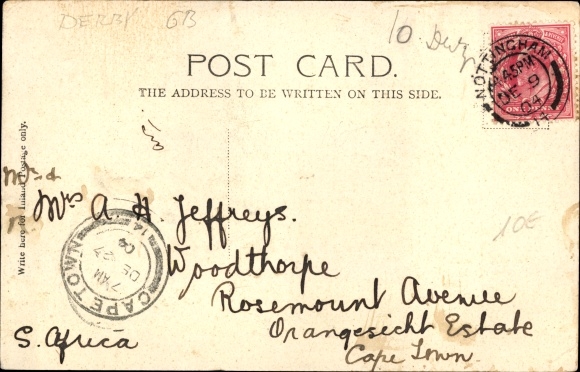 DERBY GB
10
POST CARD.
THE ADDRESS TO BE WRITTEN ON THIS SIDE.
NOTTINGHAM
45PM
DE 9
04
ONE PENNY
Write here for Inland Postage only.
Mrs A. H. Jeffreys.
Woodthorpe
Rosemount Avenue
Orangesicht Estate
Cape Town.
S. Africa
10E
CAPE TOWN
7 AM
DE 27
04